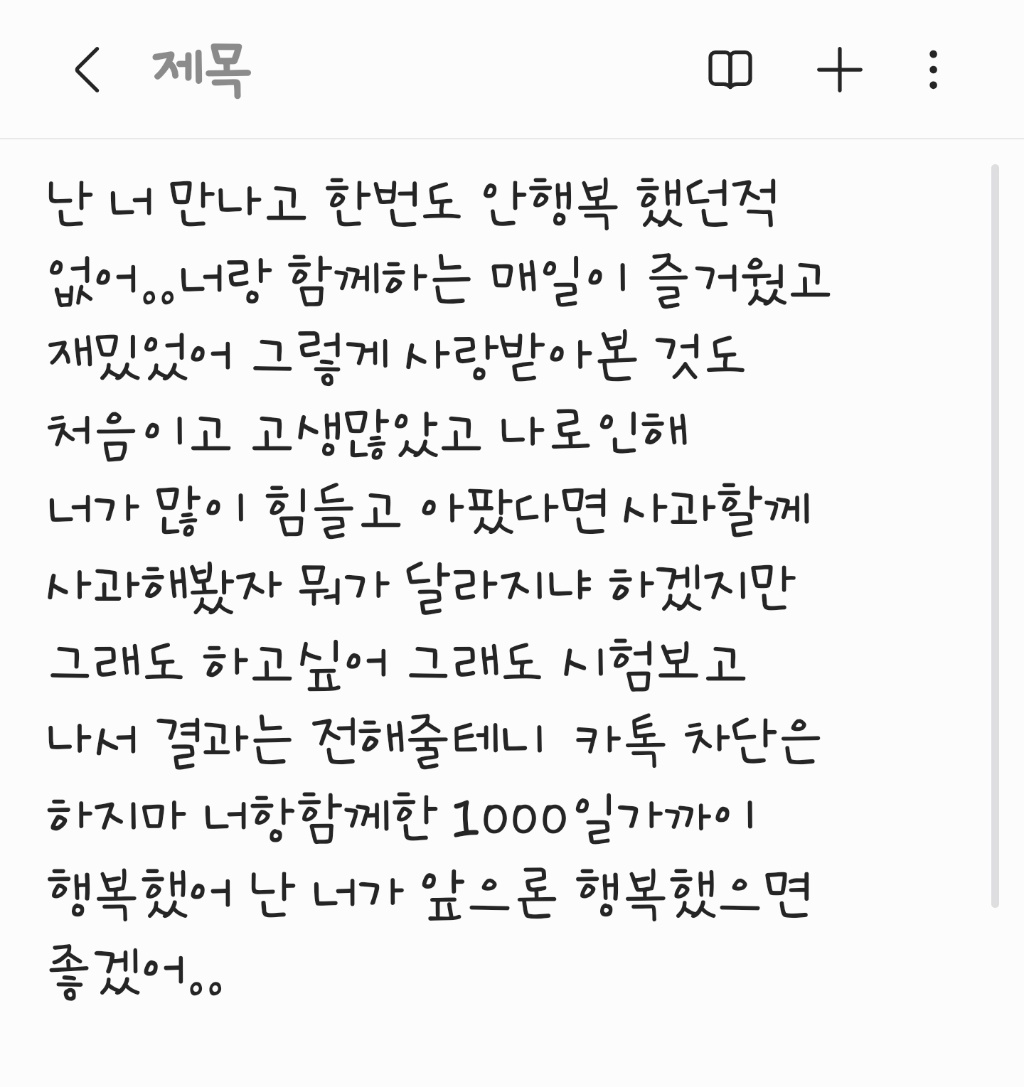 제목
난 너 만나고 한번도 안행복 했던적
없어..너랑 함께하는 매일이 즐거웠고
재밌었어 그렇게 사랑받아본 것도
처음이고 고생많았고 나로인해
너가 많이 힘들고 아팠다면 사과할께
사과해봤자 뭐가 달라지냐 하겠지만
그래도 하고싶어 그래도 시험보고
나서 결과는 전해줄테니 카톡 차단은
하지마 너항함께한 1000일가까이
행복했어 난 너가 앞으론 행복했으면
좋겠어..